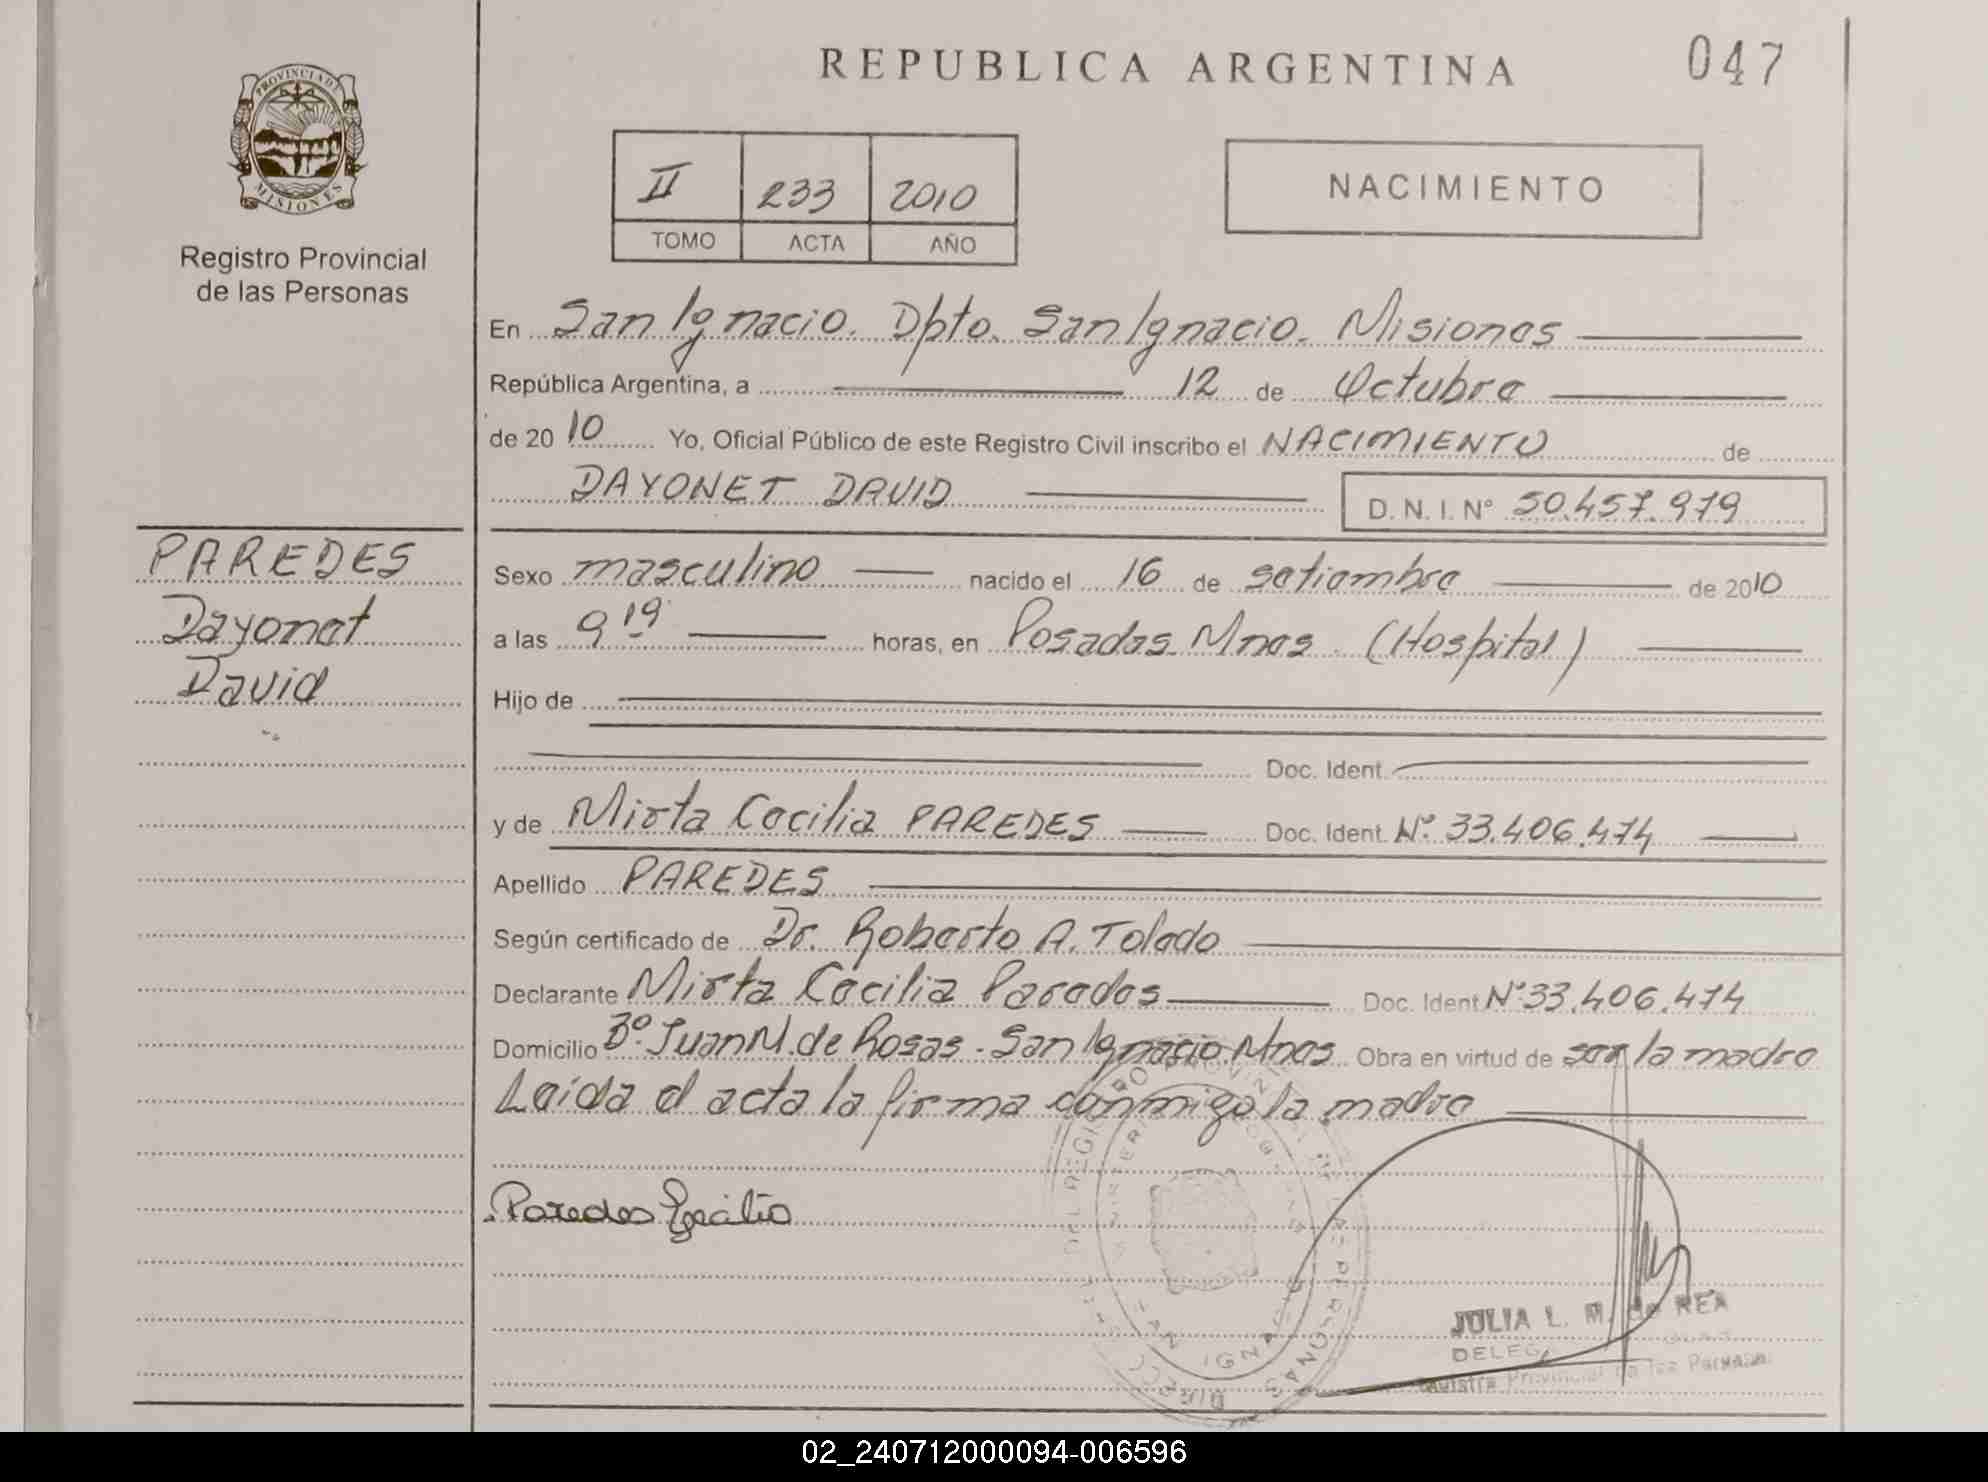 REPUBLICA ARGENTINA
047
PROVINCIA DE
MISIONES
Registro Provincial
de las Personas
II 233 2010
TOMO ACTA AÑO
NACIMIENTO
En San Ignacio. Dpto. San Ignacio. Misiones
República Argentina, a 12 de Octubre
de 2010 Yo, Oficial Público de este Registro Civil inscribo el NACIMIENTO de
DAYONET DAVID D. N. I. Nº 50.457.979
PAREDES
Dayonet
David
Sexo masculino nacido el 16 de setiembre de 2010
a las 9 19 horas, en Posadas Mnes. (Hospital)
Hijo de
Doc. Ident.
y de Mirta Cecilia PAREDES Doc. Ident. Nº. 33.406.474
Apellido PAREDES
Según certificado de Dr. Roberto A. Toledo
Declarante Mirta Cecilia Paredes Doc. Ident. Nº 33.406.474
Domicilio Bº. Juan M. de Rosas - San Ignacio Mnes. Obra en virtud de ser la madre
Leída el acta la firma conmigo la madre
Paredes Cecilia
JULIA L. M. de REA
Registro Provincial de las Personas
SAN IGNACIO
02_240712000094-006596